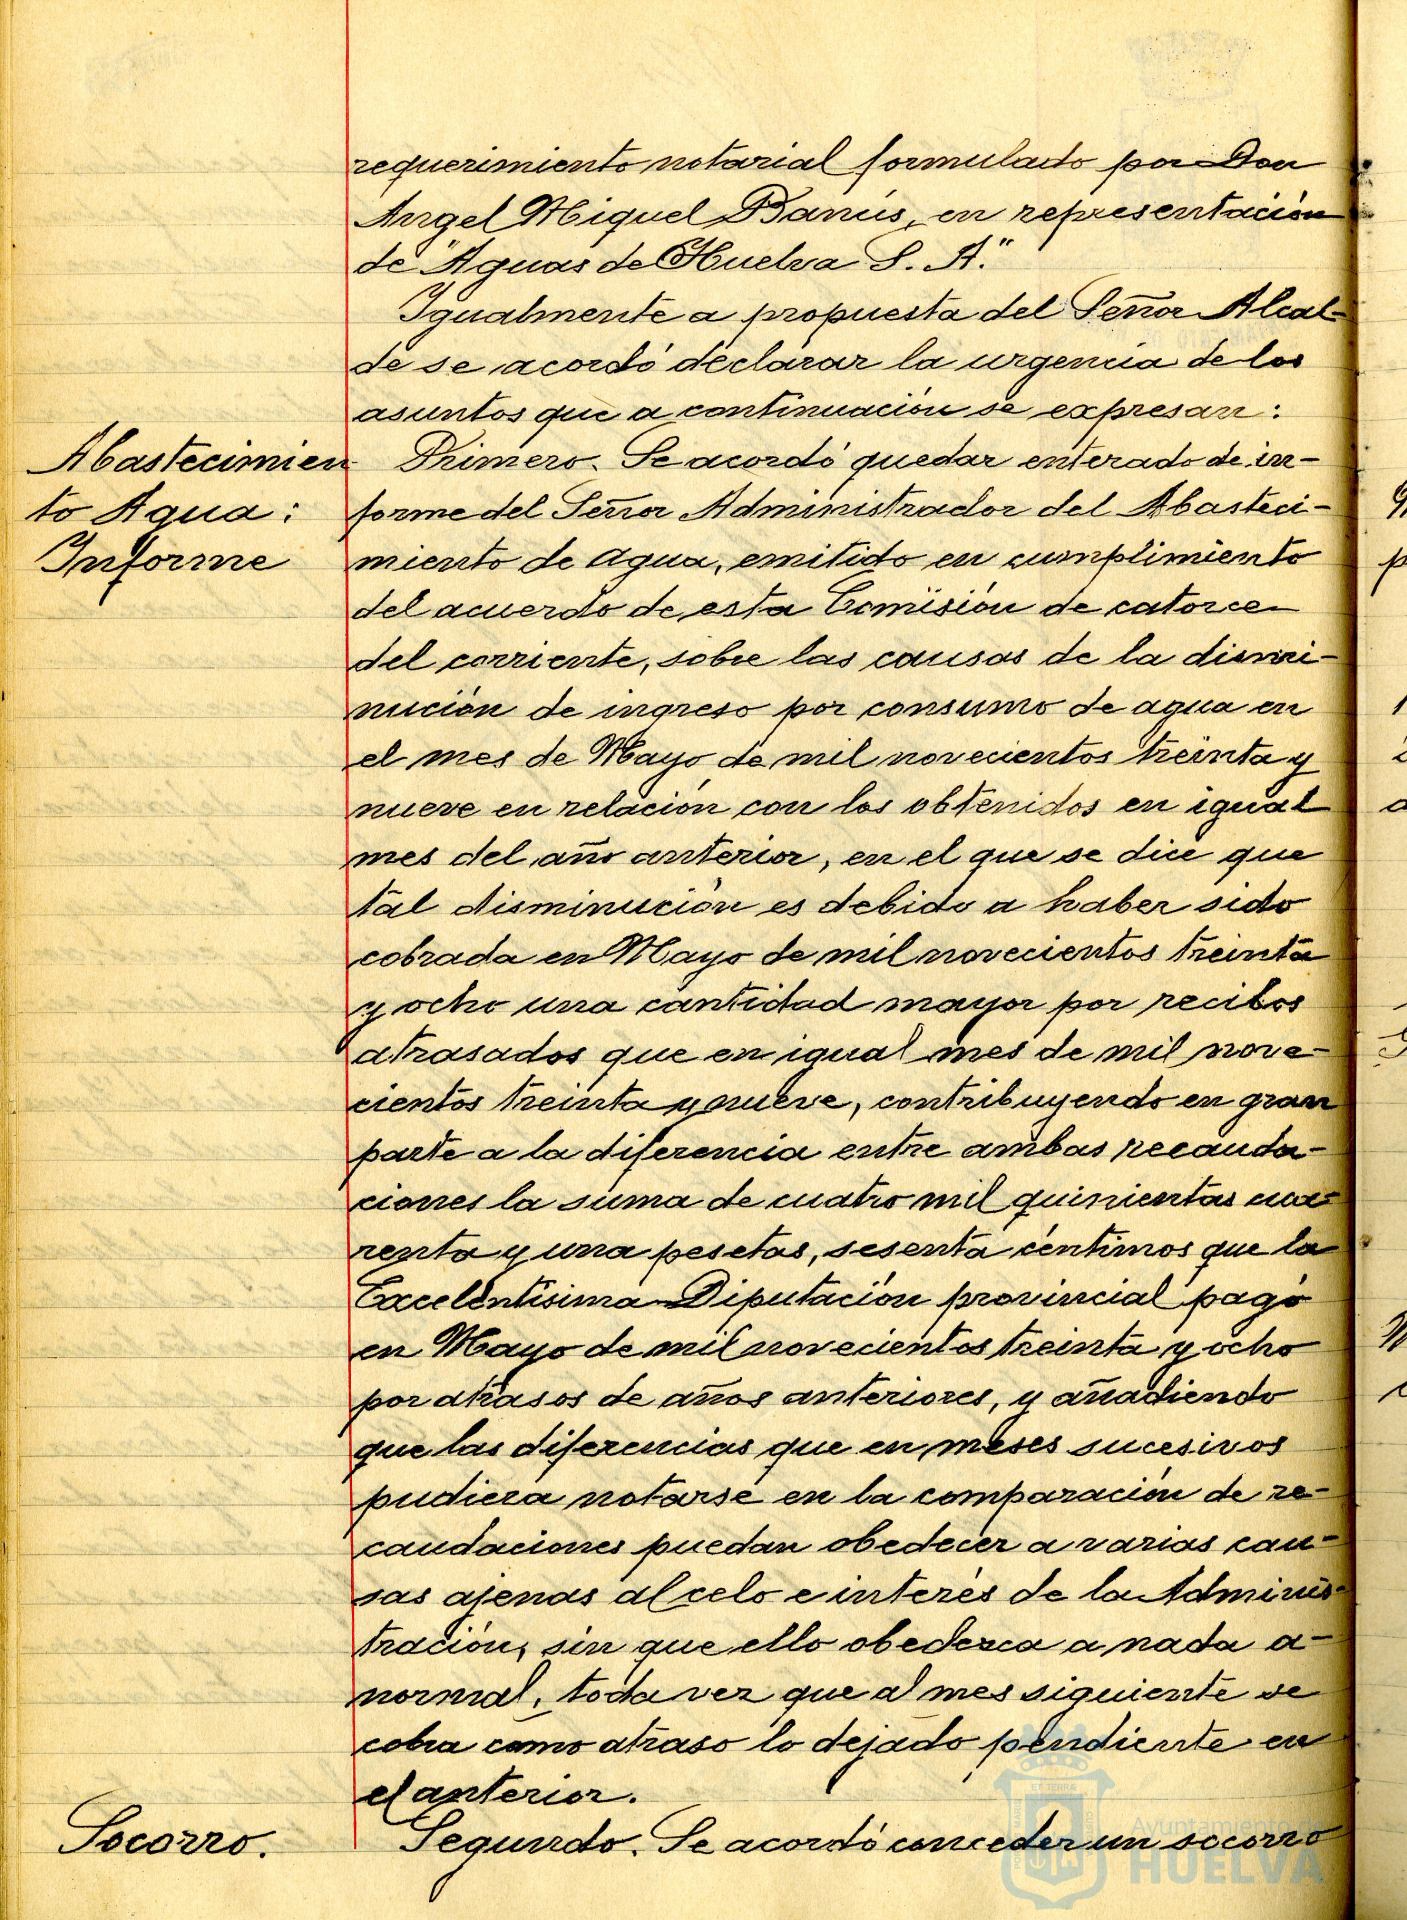 requerimiento notarial formulado por Don
Angel Miguel Banús, en representación
de "Aguas de Huelva S. A."
Igualmente a propuesta del Señor Alcal-
de se acordó declarar la urgencia de los
asuntos que a continuación se expresan:
Abastecimien
to Agua:
Informe
Primero. Se acordó quedar enterado de in-
forme del Señor Administrador del Abasteci-
miento de agua, emitido en cumplimiento
del acuerdo de esta Comisión de catorce
del corriente, sobre las causas de la dismi-
nución de ingreso por consumo de agua en
el mes de Mayo de mil novecientos treinta y
nueve en relación con los obtenidos en igual
mes del año anterior, en el que se dice que
tal disminución es debido a haber sido
cobrada en Mayo de mil novecientos treinta
y ocho una cantidad mayor por recibos
atrasados que en igual mes de mil nove-
cientos treinta y nueve, contribuyendo en gran
parte a la diferencia entre ambas recauda-
ciones la suma de cuatro mil quinientas cua-
renta y una pesetas, sesenta céntimos que la
Excelentísima Diputación provincial pagó
en Mayo de mil novecientos treinta y ocho
por atrasos de años anteriores, y añadiendo
que las diferencias que en meses sucesivos
pudiera notarse en la comparación de re-
caudaciones puedan obedecer a varias cau-
sas ajenas al celo e interés de la Adminis-
tración, sin que ello obedezca a nada a-
normal, toda vez que al mes siguiente se
cobra como atraso lo dejado pendiente en
el anterior.
Socorro.
Segundo. Se acordó conceder un socorro
Ayuntamiento
HUELVA